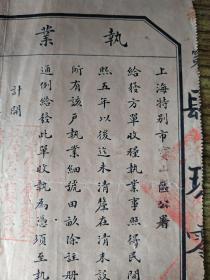 執業
上海特別市寶山區公署
給發方單收糧執業事照得民間
照五年以後迄未清釐在清未設
所有該戶執業細號田畝除註册
通例給發此單收執為憑須至執
計開